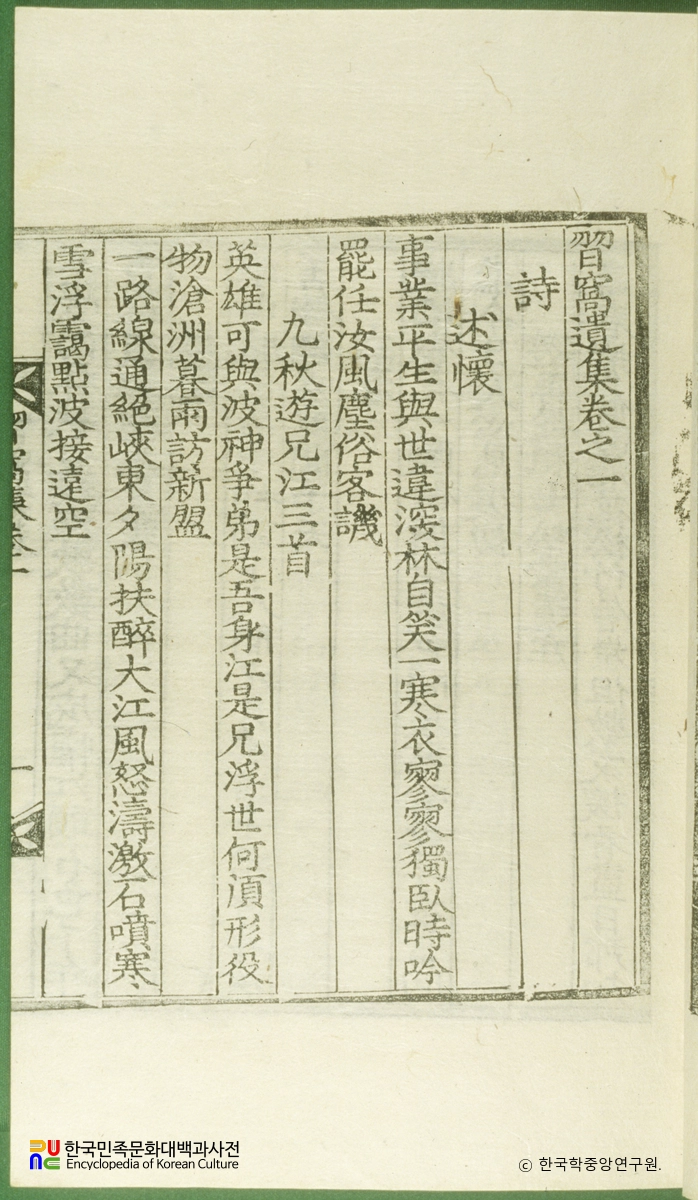 習窩遺集卷之一
詩
述懷
事業平生與世違深林自笑一寒衣寥寥獨臥時吟
罷任汝風塵俗客譏
九秋遊兄江三首
英雄可與波神爭弟是吾身江是兄浮世何須形役
物滄洲暮雨訪新盟
一路線通絕峽東夕陽扶醉大江風怒濤激石噴寒
雪浮靄點波接遠空
習窩集卷一
一
한국민족문화대백과사전
Encyclopedia of Korean Culture
© 한국학중앙연구원.